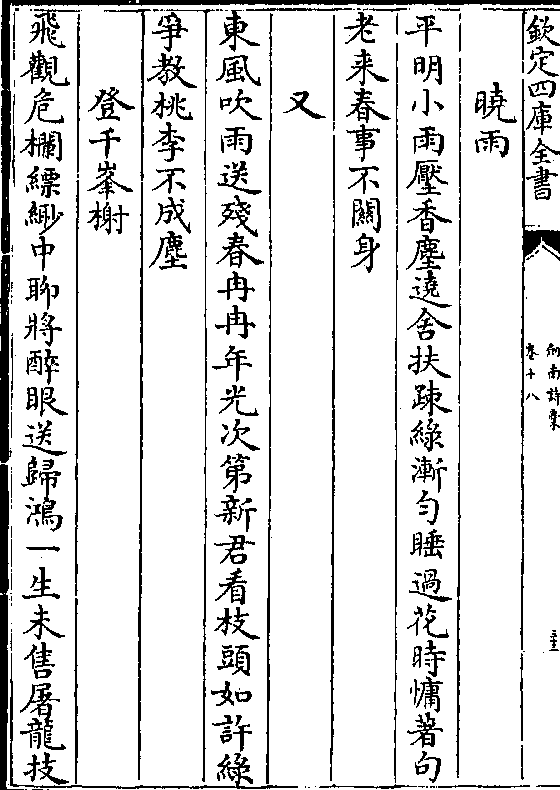 欽定四庫全書
卷十八
曉雨
平明小雨壓香塵遶舍扶踈綠漸勻睡過花時慵著句
老来春事不關身
又
東風吹雨送殘春冉冉年光次第新君看枝頭如許綠
爭教桃李不成塵
登千峯榭
飛觀危欄縹緲中聊將醉眼送歸鴻一生未售屠龍技